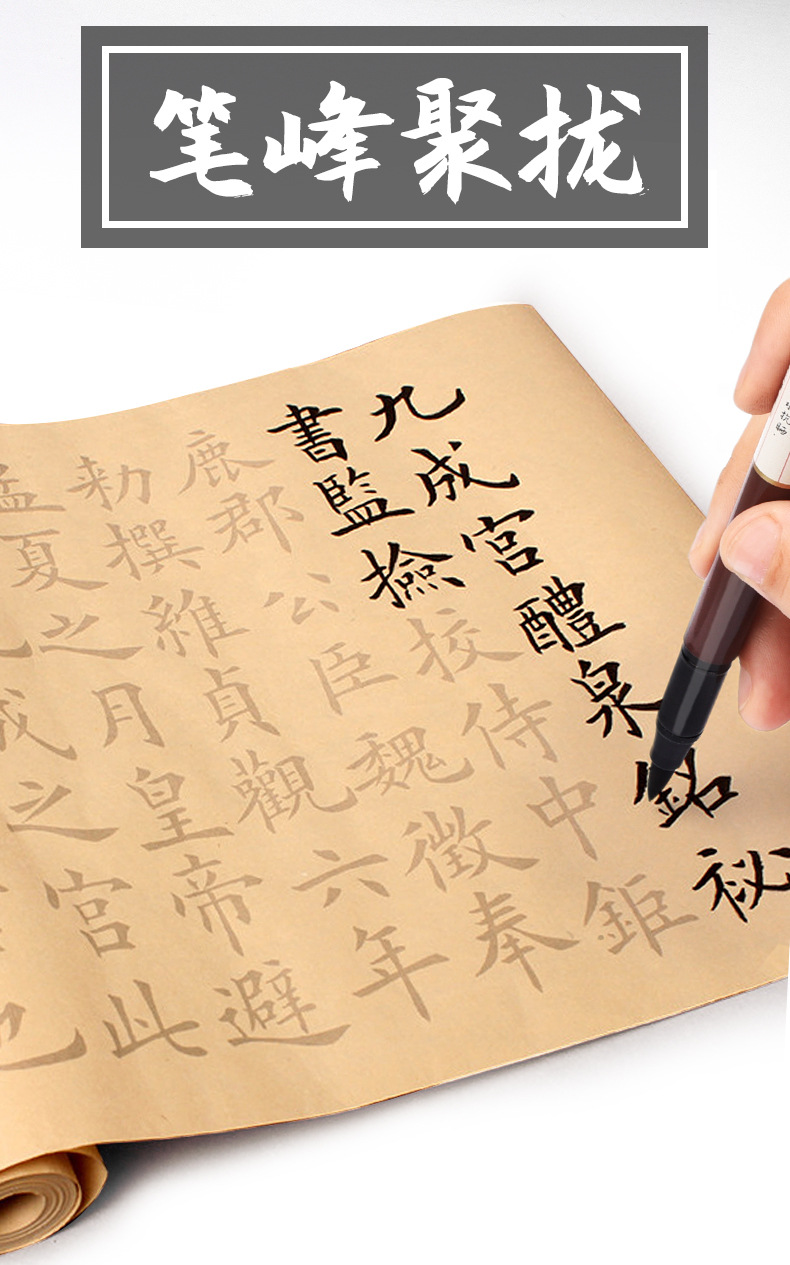 笔峰聚拢
九成宮醴泉銘祕
書監撿挍侍中鉅
鹿郡公臣魏徵奉
勑撰維貞觀六年
孟夏之月皇帝避
成之宮此
也